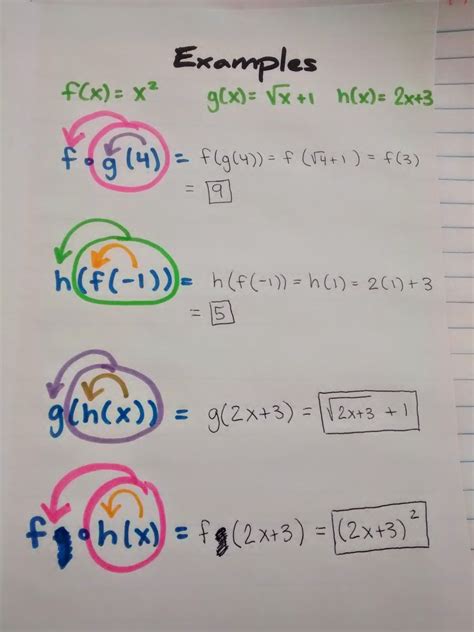 Examples
f(x) = x² g(x) = √x + 1 h(x) = 2x+3
f ∘ g(4) = f(g(4)) = f(√4+1) = f(3)
= 9
h(f(-1)) = h(f(-1)) = h(1) = 2(1)+3
= 5
g(h(x)) = g(2x+3) = √2x+3 + 1
f ∘ h(x) = f (2x+3) = (2x+3)²